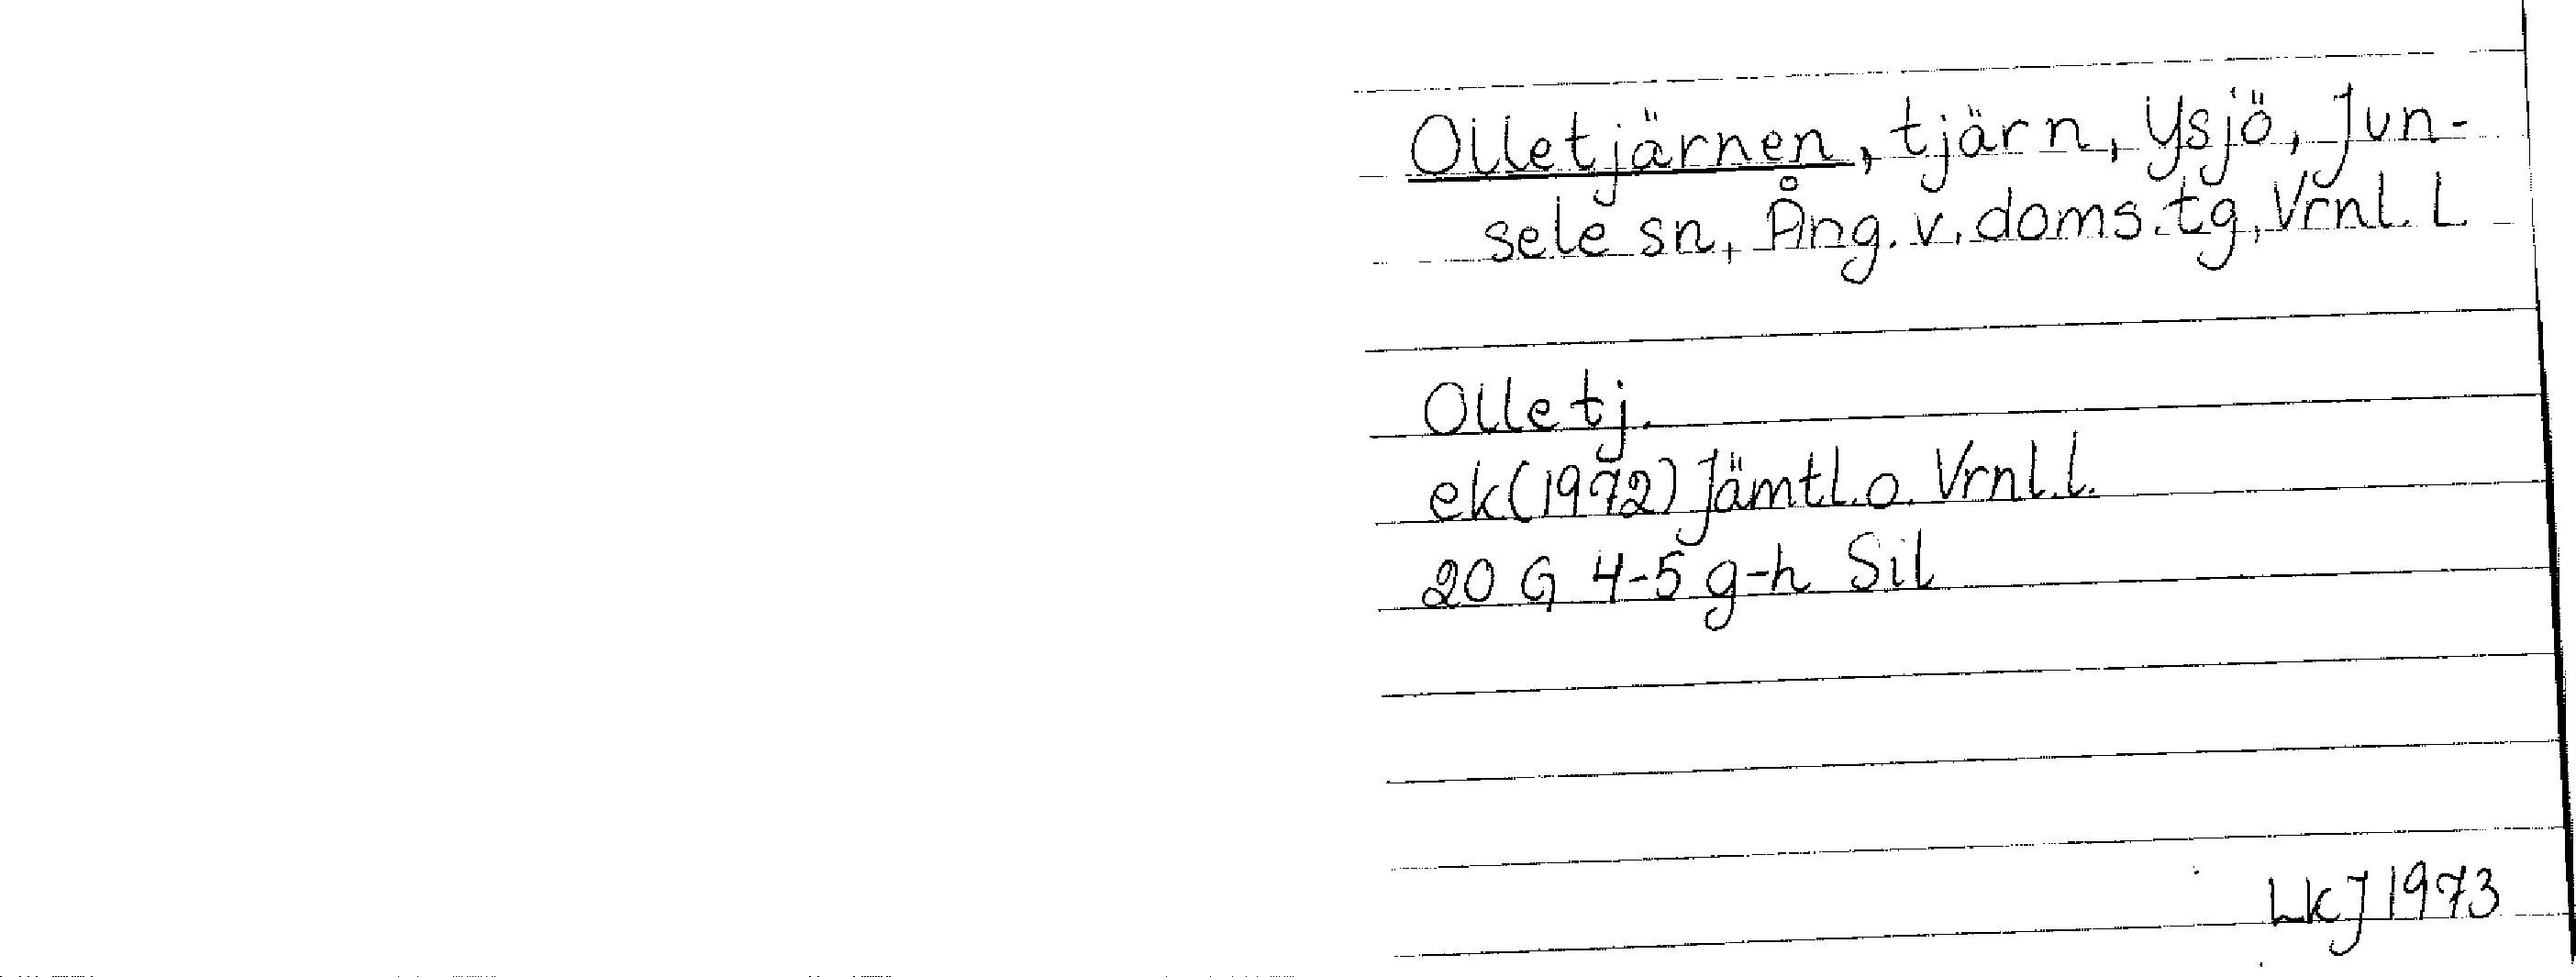 Olletjärnen, tjärn, Ysjö, Jun-
sele sn, Ång. v. doms. tg, Vrnl. L
Olletj.
ek (1972) Jämtl. o. Vrnl. l.
20 G 4-5 g-h Sil
LkJ 1973